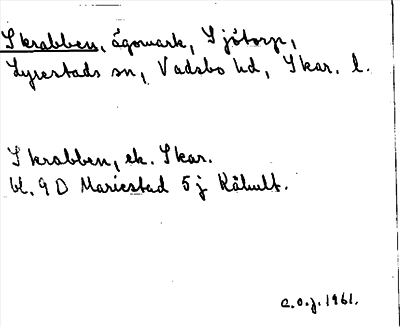 Skrabben, ägomark, Sjötorp,
Lyrestads sn, Vadsbo hd, Skar. l.
Skrabben, ek. Skar.
bl. 9 D Mariestad 5 j Kåhult.
C.O.J. 1961.